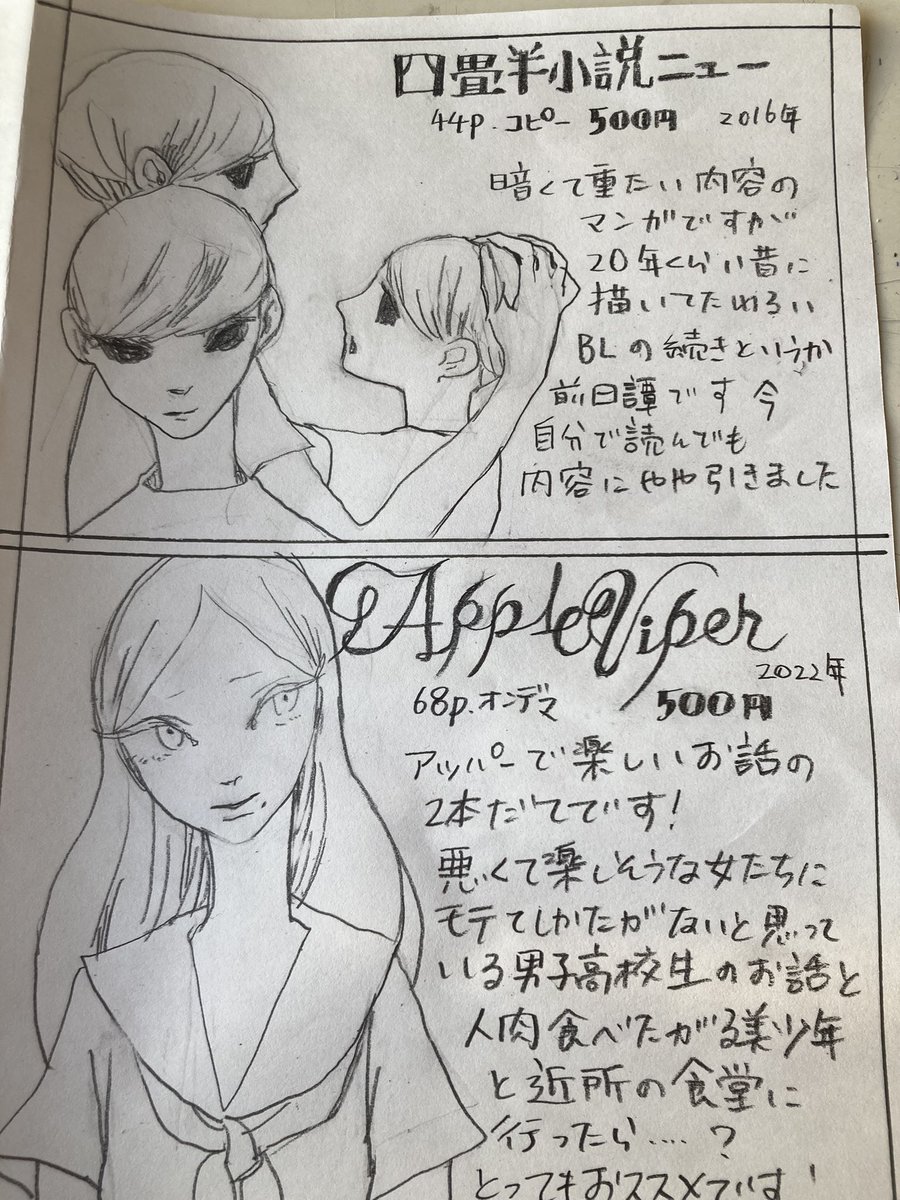 四畳半小説ニュー
44p.コピー 500円 2016年
暗くて重たい内容の
マンガですが
20年くらい昔に
描いてためろい
BLの続きというか
前日譚です 今
自分で読んでも
内容にやや引きました
AppleViper
2022年
68p.オンデマ 500円
アッパーで楽しいお話の
2本だてです!
悪くて楽しそうな女たちに
モテてしかたがないと思って
いる男子高校生のお話と
人肉食べたがる美少年
と近所の食堂に
行ったら....?
とってもおススメでは!